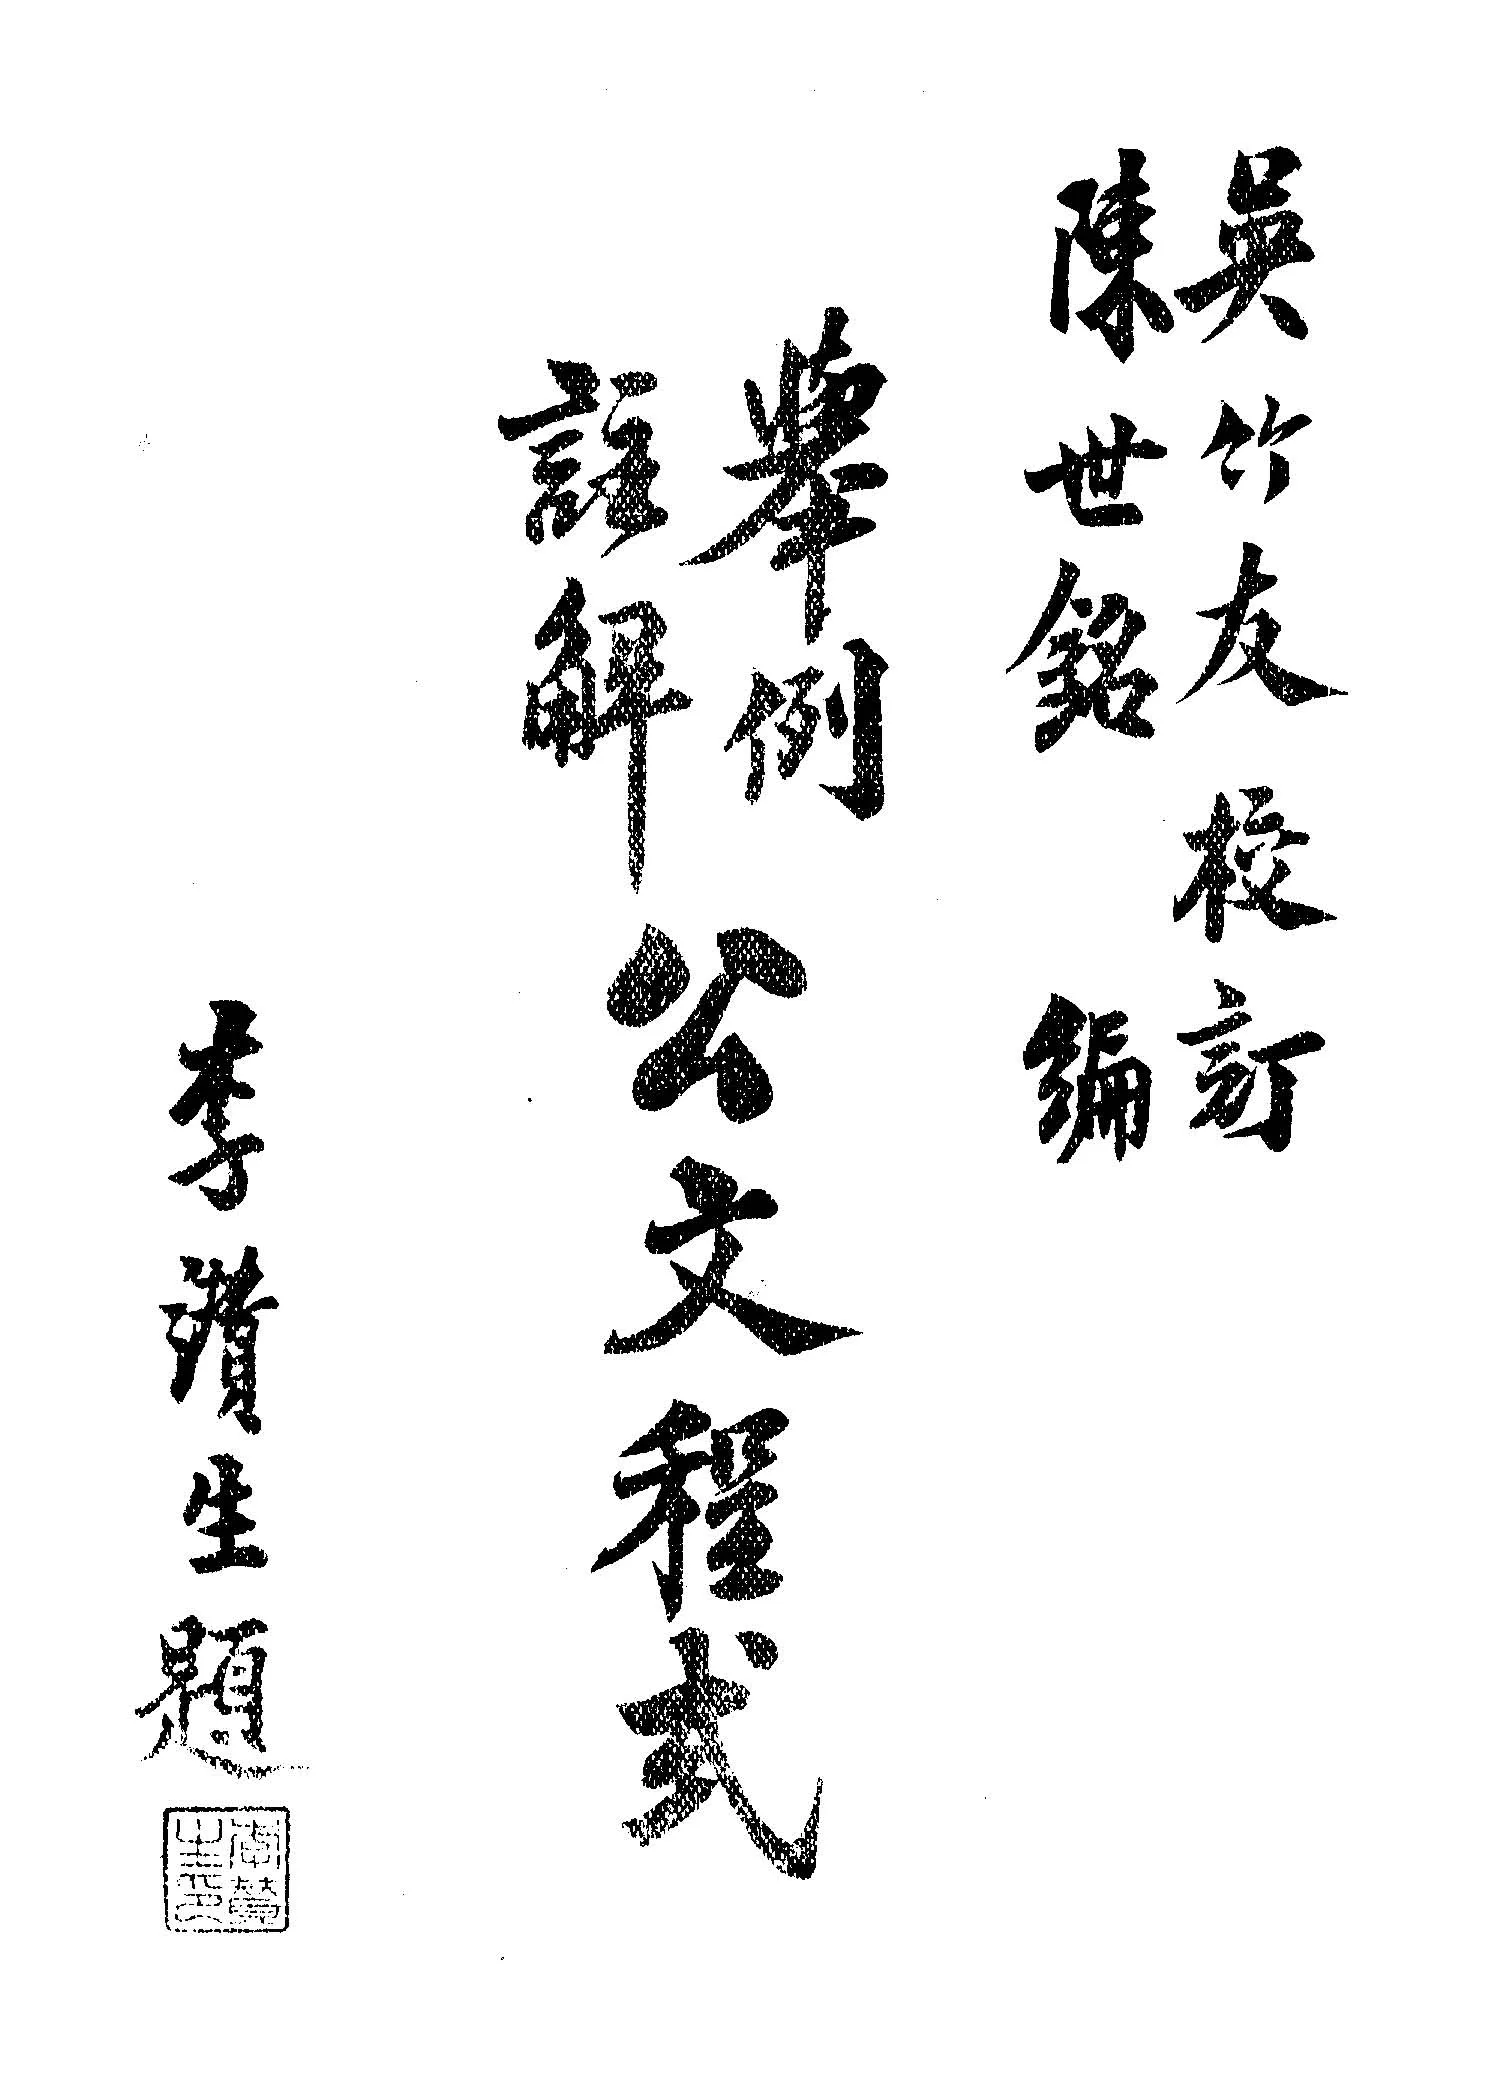 吳竹友校訂
陳世銘編
舉例
註解
公文程式
李瓚生題
李瓚
生印